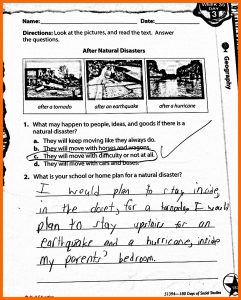 WEEK 30
DAY
3
Name: Date:
Directions: Look at the pictures, and read the text. Answer
the questions.
After Natural Disasters
after a tornado after an earthquake after a hurricane
1. What may happen to people, ideas, and goods if there is a
natural disaster?
a. They will keep moving like they always do.
b. They will move with horses and wagons.
c. They will move with difficulty or not at all.
d. They will move with cars and buses.
2. What is your school or home plan for a natural disaster?
I would plan to stay inside,
in the closet, for a tornado. I would
plan to stay upstairs for an
earthquake and a hurricane, inside
my parents' bedroom.
Geography
51394—180 Days of Social Studies